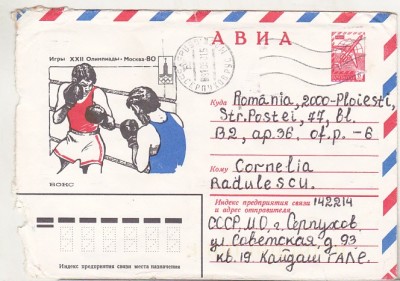 АВИА
Игры XXII Олимпиады · Москва-80
БОКС
Куда
România, 2000-Ploiesti,
Str. Postei, 77, bl.
B2, ap. 36, of. p. - 6
Кому
Cornelia
Radulescu.
Индекс предприятия связи
и адрес отправителя
142214
СССР, М.О, г. Серпухов,
ул Советская, д. 93
кв. 19. Кайдаш Г.А.
Индекс предприятия связи места назначения